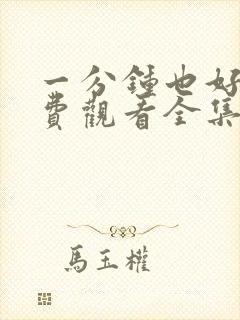 一分鍾也好
費觀看全集
馬玉權